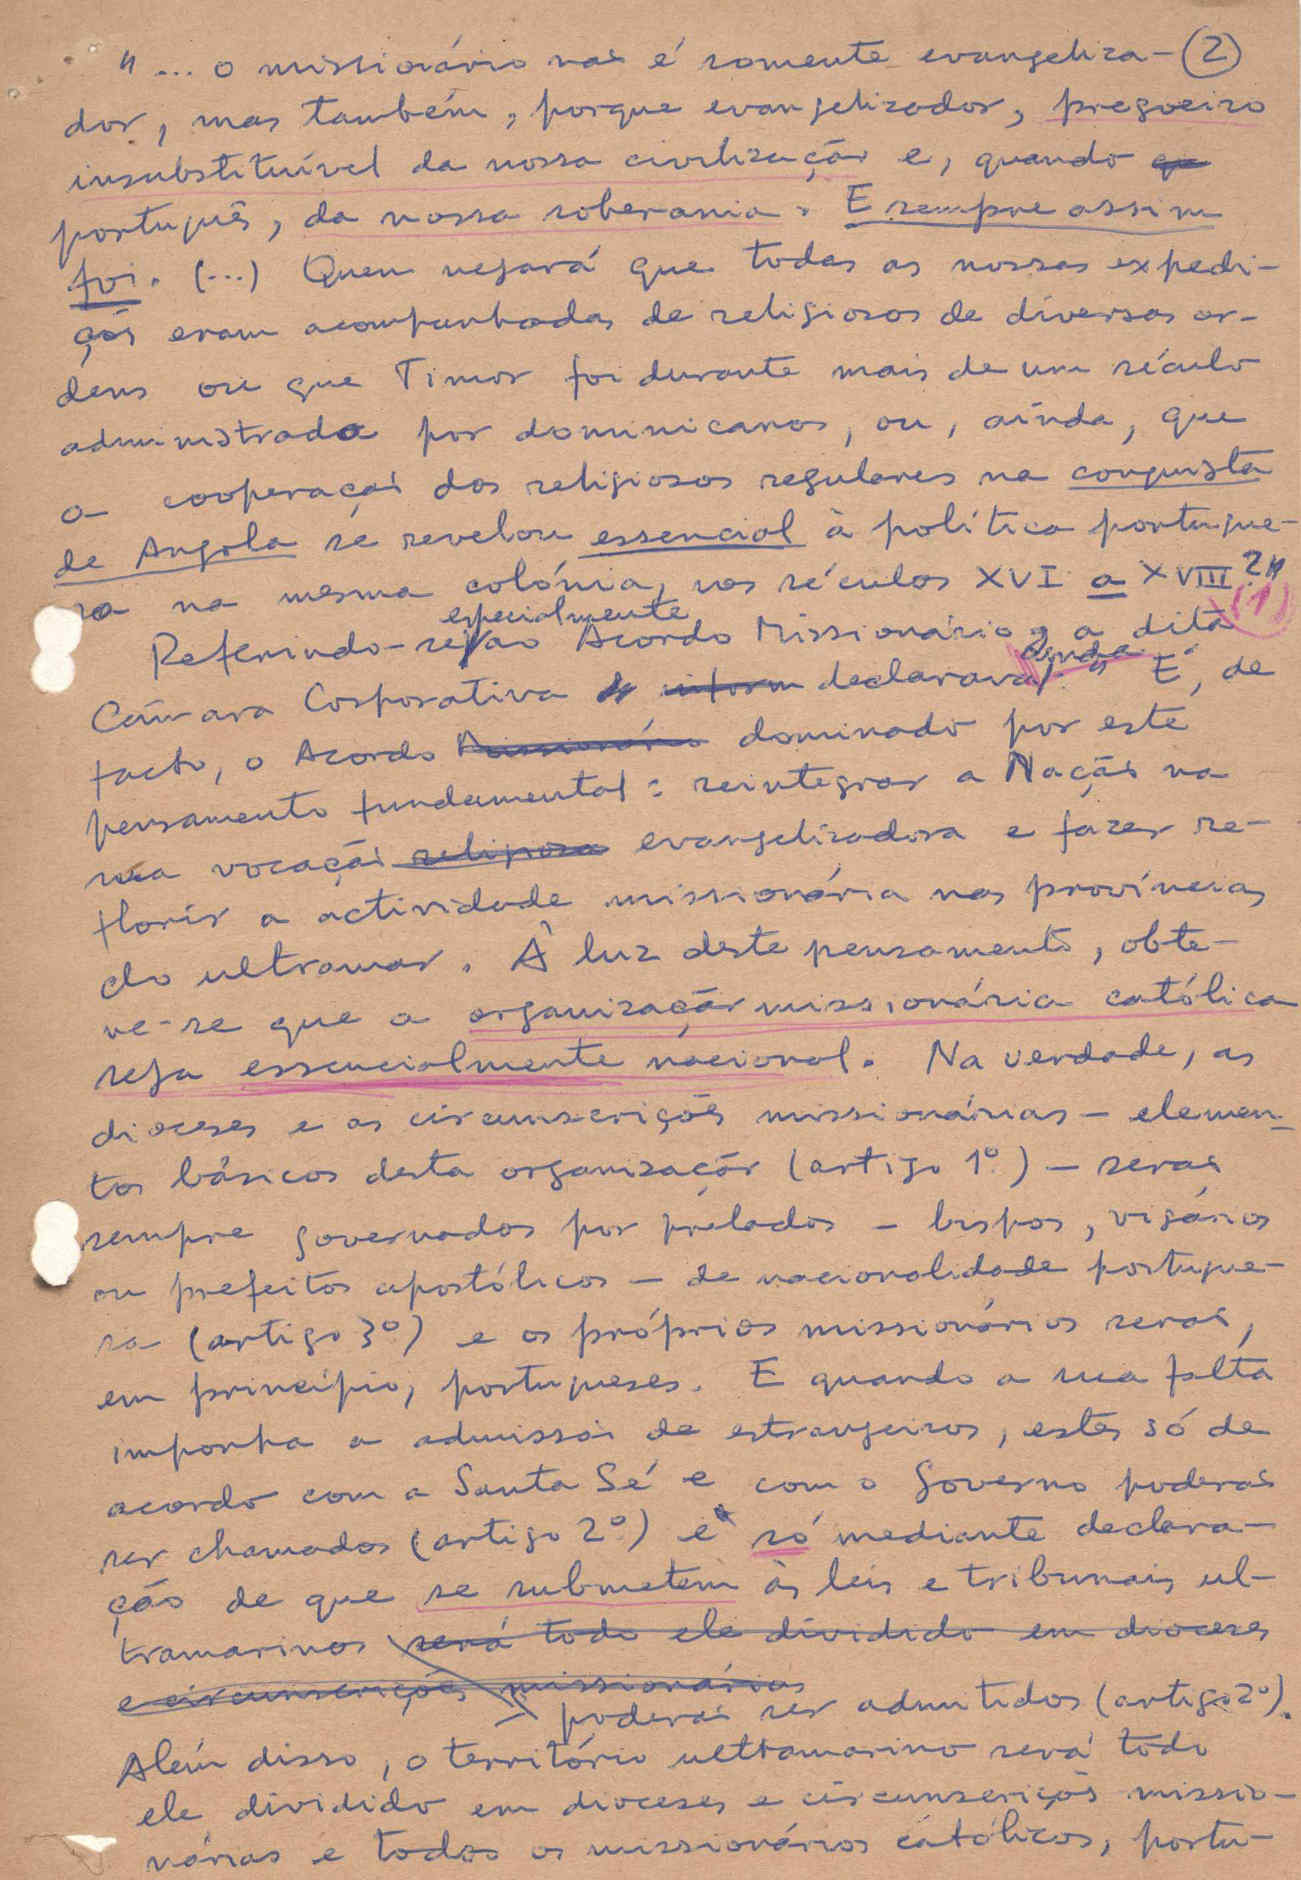 "... o missionário não é somente evangeliza- (2)
dor, mas também, porque evangelizador, pregoeiro
insubstituível da nossa civilização e, quando qu
português, da nossa soberania. E sempre assim
foi. (...) Quem negará que todas as nossas expedi-
ções eram acompanhadas de religiosos de diversas or-
dens ou que Timor foi durante mais de um século
administrado por dominicanos, ou, ainda, que
a cooperação dos religiosos regulares na conquista
de Angola se revelou essencial à política portugue-
sa na mesma colónia, nos séculos XVI a XVIII?"
(1)
especialmente
Referindo-se ao Acordo Missionário, a dita
ainda
Câmara Corporativa inform declarava: "É, de
facto, o Acordo Missionário dominado por este
pensamento fundamental: reintegrar a Nação na
sua vocação religiosa evangelizadora e fazer re-
florir a actividade missionária nas províncias
do ultramar. À luz deste pensamento, obte-
ve-se que a organização missionária católica
seja essencialmente nacional. Na verdade, as
dioceses e as circunscrições missionárias - elemen-
tos básicos desta organização (artigo 1º) - serão
sempre governados por prelados - bispos, vigários
ou prefeitos apostólicos - de nacionalidade portugue-
sa (artigo 3º) e os próprios missionários serão,
em princípio, portugueses. E quando a sua falta
imponha a admissão de estrangeiros, estes só de
acordo com a Santa Sé e com o Governo poderão
ser chamados (artigo 2º) e só mediante declara-
ção de que se submetem às leis e tribunais ul-
tramarinos será todo ele dividido em dioceses
e circunscrições missionárias
poderão ser admitidos (artigo 2º).
Além disso, o território ultramarino será todo
ele dividido em dioceses e circunscrições missio-
nárias e todos os missionários católicos, portu-